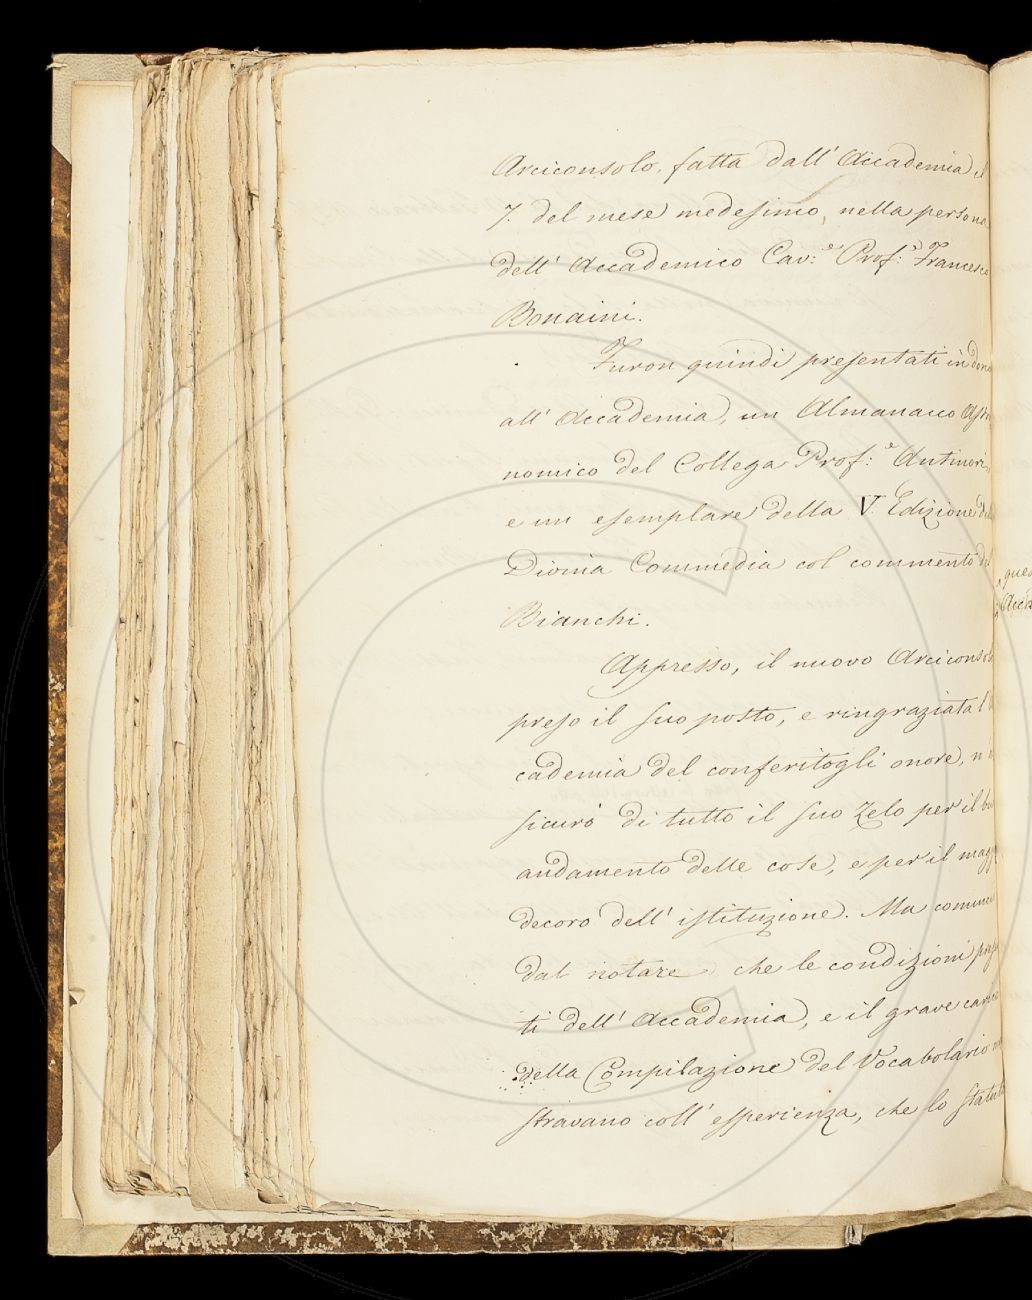 Arciconsolo, fatta dall' Accademia il
7. del mese medesimo, nella persona
dell' Accademico Cav:e Prof:e Francesco
Bonaini.
Furon quindi presentati in dono
all' Accademia, un Almanacco Astro
nomico del Collega Prof:e Antinori,
e un esemplare della V. Edizione della
Divina Commedia col commento del
Bianchi.
Appresso, il nuovo Arciconsolo
preso il suo posto, e ringraziata l'
cademia del conferitogli onore,
sicurò di tutto il suo zelo per il
andamento delle cose, e per il
decoro dell' istituzione. Ma
dal notare che le condizioni
ti dell' Accademia, e il grave
della Compilazione del Vocabolario
stravano coll' esperienza, che lo